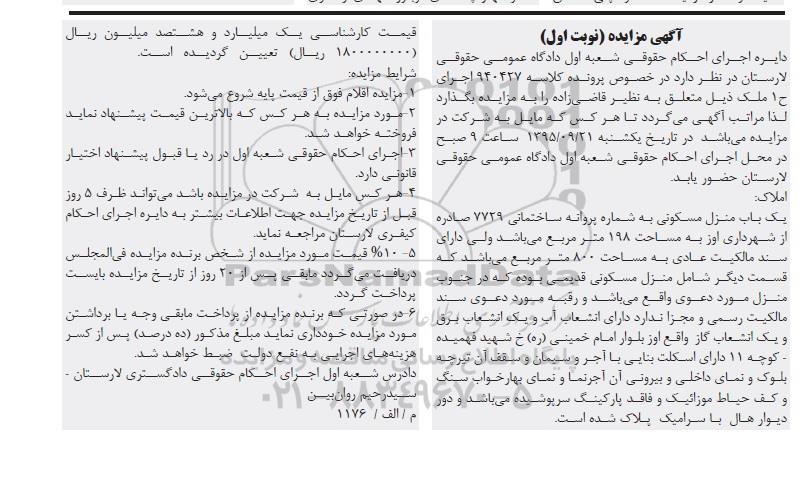 آگهی مزایده (نوبت اول)
دایـره اجـرای احـکام حقوقـی شـعبه اول دادگاه عمومـی حقوقـی
لارستان در نظـر دارد در خصوص پرونـده کلاسـه ۹۴۰۴۲۷ اجـرای
ح۱ ملـک ذیـل متعلـق بـه نظیـر قاضی‌زاده را بـه مزایـده بگـذارد
لـذا مراتـب آگهـی می‌گـردد تـا هـر کـس کـه مایـل بـه شـرکت در
مزایـده می‌باشـد در تاریـخ یکشـنبه ۱۳۹۵/۰۹/۲۱ سـاعت ۹ صبـح
در محـل اجرای احـکام حقوقـی شـعبه اول دادگاه عمومـی حقوقـی
لارستان حضـور یابـد.
املاک:
یـک بـاب منـزل مسـکونی به شـماره پروانـه ساختمانی ۷۷۲۹ صـادره
از شـهرداری اوز بـه مسـاحت ۱۹۸ متـر مربـع می‌باشـد ولـی دارای
سـند مالکیـت عـادی بـه مسـاحت ۸۰۰ متـر مربـع می‌باشـد کـه
قسـمت دیگـر شـامل منـزل مسـکونی قدیمـی بـوده کـه در جنـوب
منـزل مـورد دعـوی واقـع می‌باشـد و رقبـه مـورد دعـوی سـند
مالکیـت رسـمی و مجـزا نـدارد دارای انشـعاب آب و یـک انشـعاب برق
و یـک انشـعاب گاز واقـع اوز بلـوار امـام خمینـی (ره) خ شـهید فهمیـده
- کوچـه ۱۱ دارای اسـکلت بنایـی بـا آجـر و سـیمان و سـقف آن تیرچـه
بلـوک و نمـای داخلـی و بیرونـی آن آجرنمـا و نمـای بهارخـواب سـنگ
و کـف حیـاط موزائیـک و فاقـد پارکینـگ سرپوشـیده می‌باشـد و دور
دیـوار هـال بـا سـرامیک پـلاک شـده اسـت.
قیمـت کارشناسـی یـک میلیـارد و هشـتصد میلیـون ریـال
(۱۸۰۰۰۰۰۰۰۰ ریـال) تعییـن گردیـده اسـت.
شرایط مزایده:
۱-مزایده اقلام فوق از قیمت پایه شروع می‌شود.
۲-مـورد مزایـده بـه هـر کـس کـه بالاتریـن قیمـت پیشـنهاد نمایـد
فروختـه خواهـد شـد.
۳-اجـرای احـکام حقوقـی شـعبه اول در رد یـا قبـول پیشـنهاد اختیـار
قانونـی دارد.
۴-هـر کـس مایـل بـه شـرکت در مزایـده باشـد می‌توانـد ظـرف ۵ روز
قبـل از تاریـخ مزایـده جهـت اطلاعـات بیشـتر بـه دایـره اجـرای احـکام
کیفـری لارسـتان مراجعـه نمایـد.
۵- ۱۰% قیمـت مـورد مزایـده از شـخص برنـده مزایـده فی‌المجلـس
دریافـت می‌گـردد مابقـی پـس از ۲۰ روز از تاریـخ مزایـده بایسـت
پرداخـت گـردد.
۶-در صورتـی کـه برنـده مزایـده از پرداخـت مابقـی وجـه یـا برداشـتن
مـورد مزایـده خـودداری نمایـد مبلـغ مذکـور (ده درصـد) پـس از کسـر
هزینه‌هـای اجرایـی بـه نفـع دولـت ضبـط خواهـد شـد.
دادرس شـعبه اول اجـرای احـکام حقوقـی دادگسـتری لارسـتان -
سـیدرحیم روان‌بیـن
م / الف / ۱۱۷۶
ParsNamadData
۰۲۱-۸۸۳۴۹۶۷۰-۵